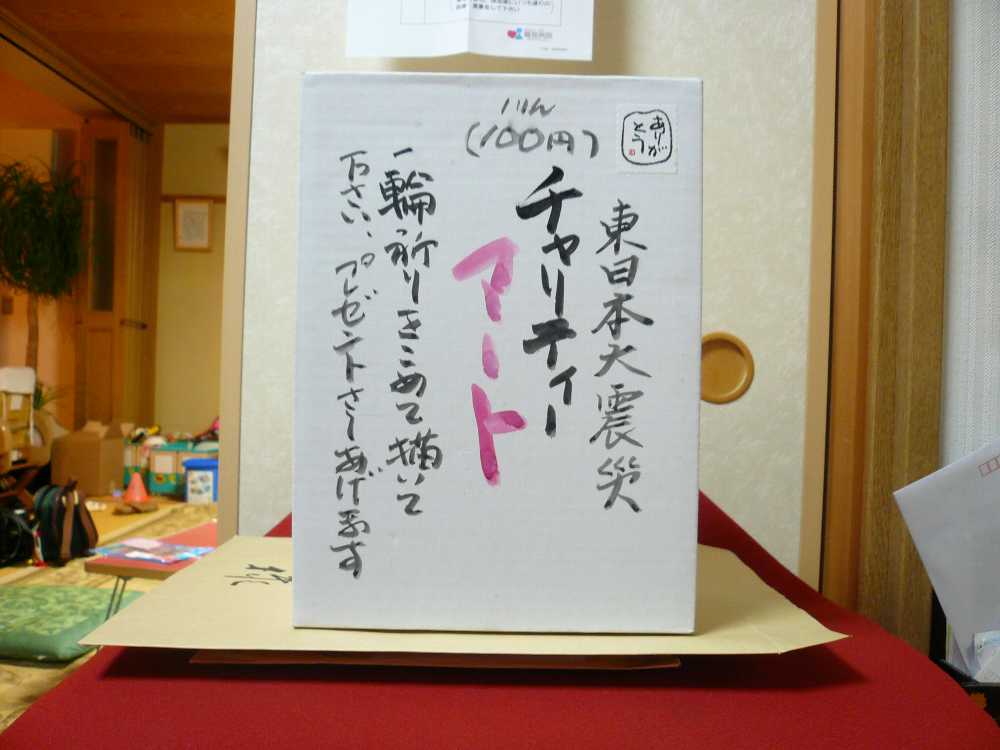 東日本大震災
チャリティー
アート
(100円)
一輪祈りをこめて描いて
下さい、プレゼントさしあげます
ありが
とう